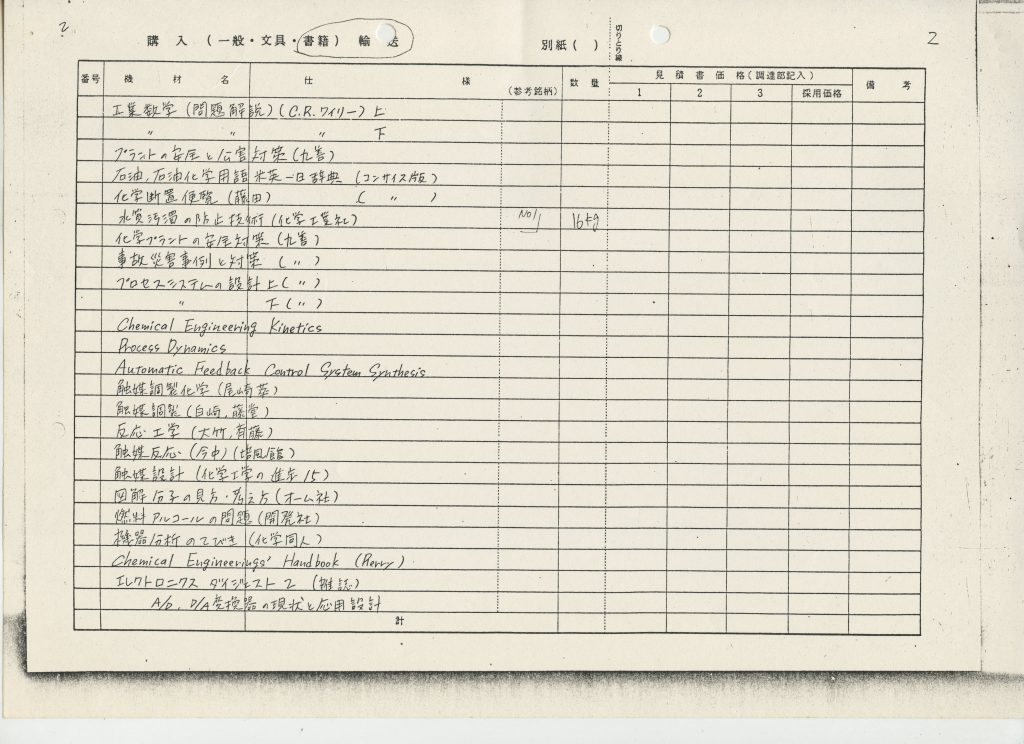 2
購入（一般・文具・書籍）輸送 別紙（ ） 切りとり線 2
番号 機材名 仕様 （参考銘柄） 数量 見積書価格（調達部記入） 備考
1 2 3 採用価格
工業数学（問題解説）（C.R.ワイリー）上
〃 〃 〃 下
プラントの安全と公害対策（丸善）
石油,石油化学用語 米英-日辞典（コンサイス版）
化学断置便覧（藤田）（ 〃 ）
水質汚濁の防止技術（化学工業社） No1 16kg
化学プラントの安全対策（丸善）
事故災害事例と対策（〃）
プロセスシステムの設計上（〃）
〃 下（〃）
Chemical Engineering Kinetics
Process Dynamics
Automatic Feedback Control System Synthesis
触媒調製化学（尾崎萃）
触媒調製（白崎,藤堂）
反応工学（大竹,斉藤）
触媒反応（今中）（培風館）
触媒設計（化学工学の進歩15）
図解分子の見方・考え方（オーム社）
燃料アルコールの問題（開発社）
機器分析のてびき（化学同人）
Chemical Engineerings' Handbook (Perry)
エレクトロニクス ダイジェスト2（雑誌）
A/D, D/A変換器の現状と応用設計
計